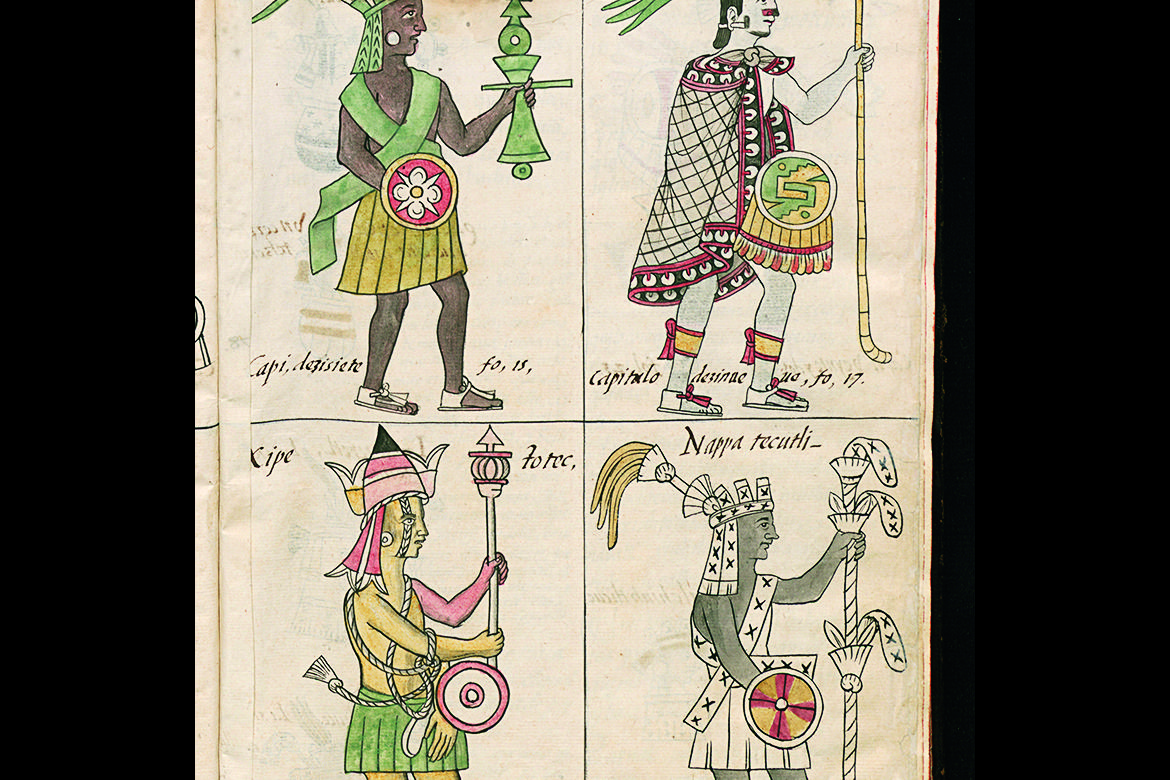 Capi, dezisiete fo, 15,
Capitulo dezinue ue, fo, 17.
Xipe totec,
Nappa tecutli-